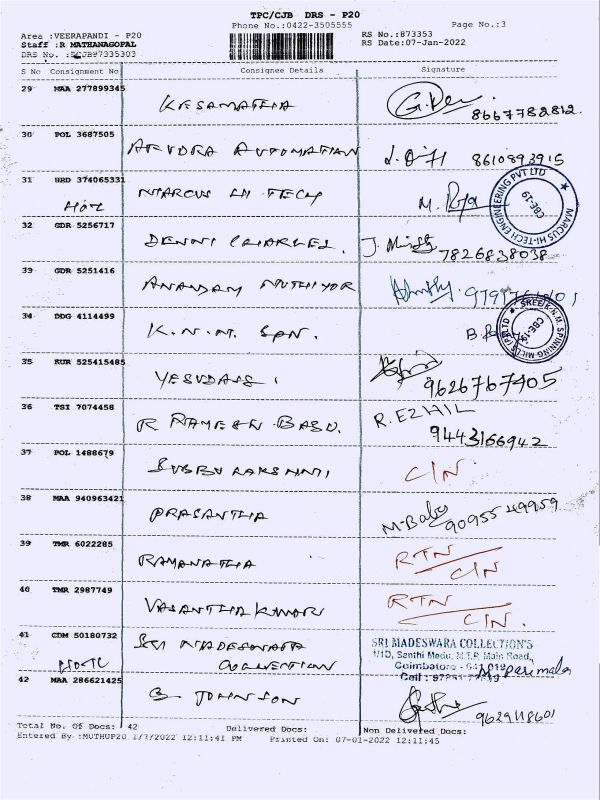 TPC/CJB DRS - P20
Phone No.:0422-3505555
Page No.:3
Area :VEERAPANDI - P20
RS No.:873353
Staff :R MATHANAGOPAL
RS Date:07-Jan-2022
DRS No.
S No Consignment No Consignee Details Signature
29 MAA 277899345 KESAMATHA 8667782812.
30 POL 3687505 AUTOMATION 8610893915
31 374065331 MARCUS HI TECH M.
MARCUS HI-TECH ENGINEERING PVT LTD
CBE-19
32 GDR 5256717 DENNI CHARLES. J.
7826838038
33 GDR 5251416 ANANDAM
34 DDG 4114499 K.N.M. SPN.
SREE K.N.M SPINNING MILLS (P) LTD
CBE-19
35 RUR 525415485 YESUDASS
9626767405
36 TSI 7074458 R RAMESH BABU. R. EZHIL
9443166942
37 POL 1488679 SUBBU LAKSHMI C/N
38 MAA 940963421 PRASANTHA M. Babu
9095549959
39 TMR 6022285 RAMANATHA RTN
C/N
40 TMR 2987749 VASANTHA KUMAR RTN
C/N.
41 CDM 50180732 SRI MADESWARA
COLLECTION
SRI MADESWARA COLLECTION'S
1/1D, Santhi Medu, M.T.P. Main Road,
Coimbatore - 641 019
Cell :
42 MAA 286621425 S. JOHNSON
9629118601
Total No. Of Docs: 42 Delivered Docs: Non Delivered Docs:
Entered By :MUTHUP20 1/7/2022 12:11:41 PM Printed On: 07-01-2022 12:11:45